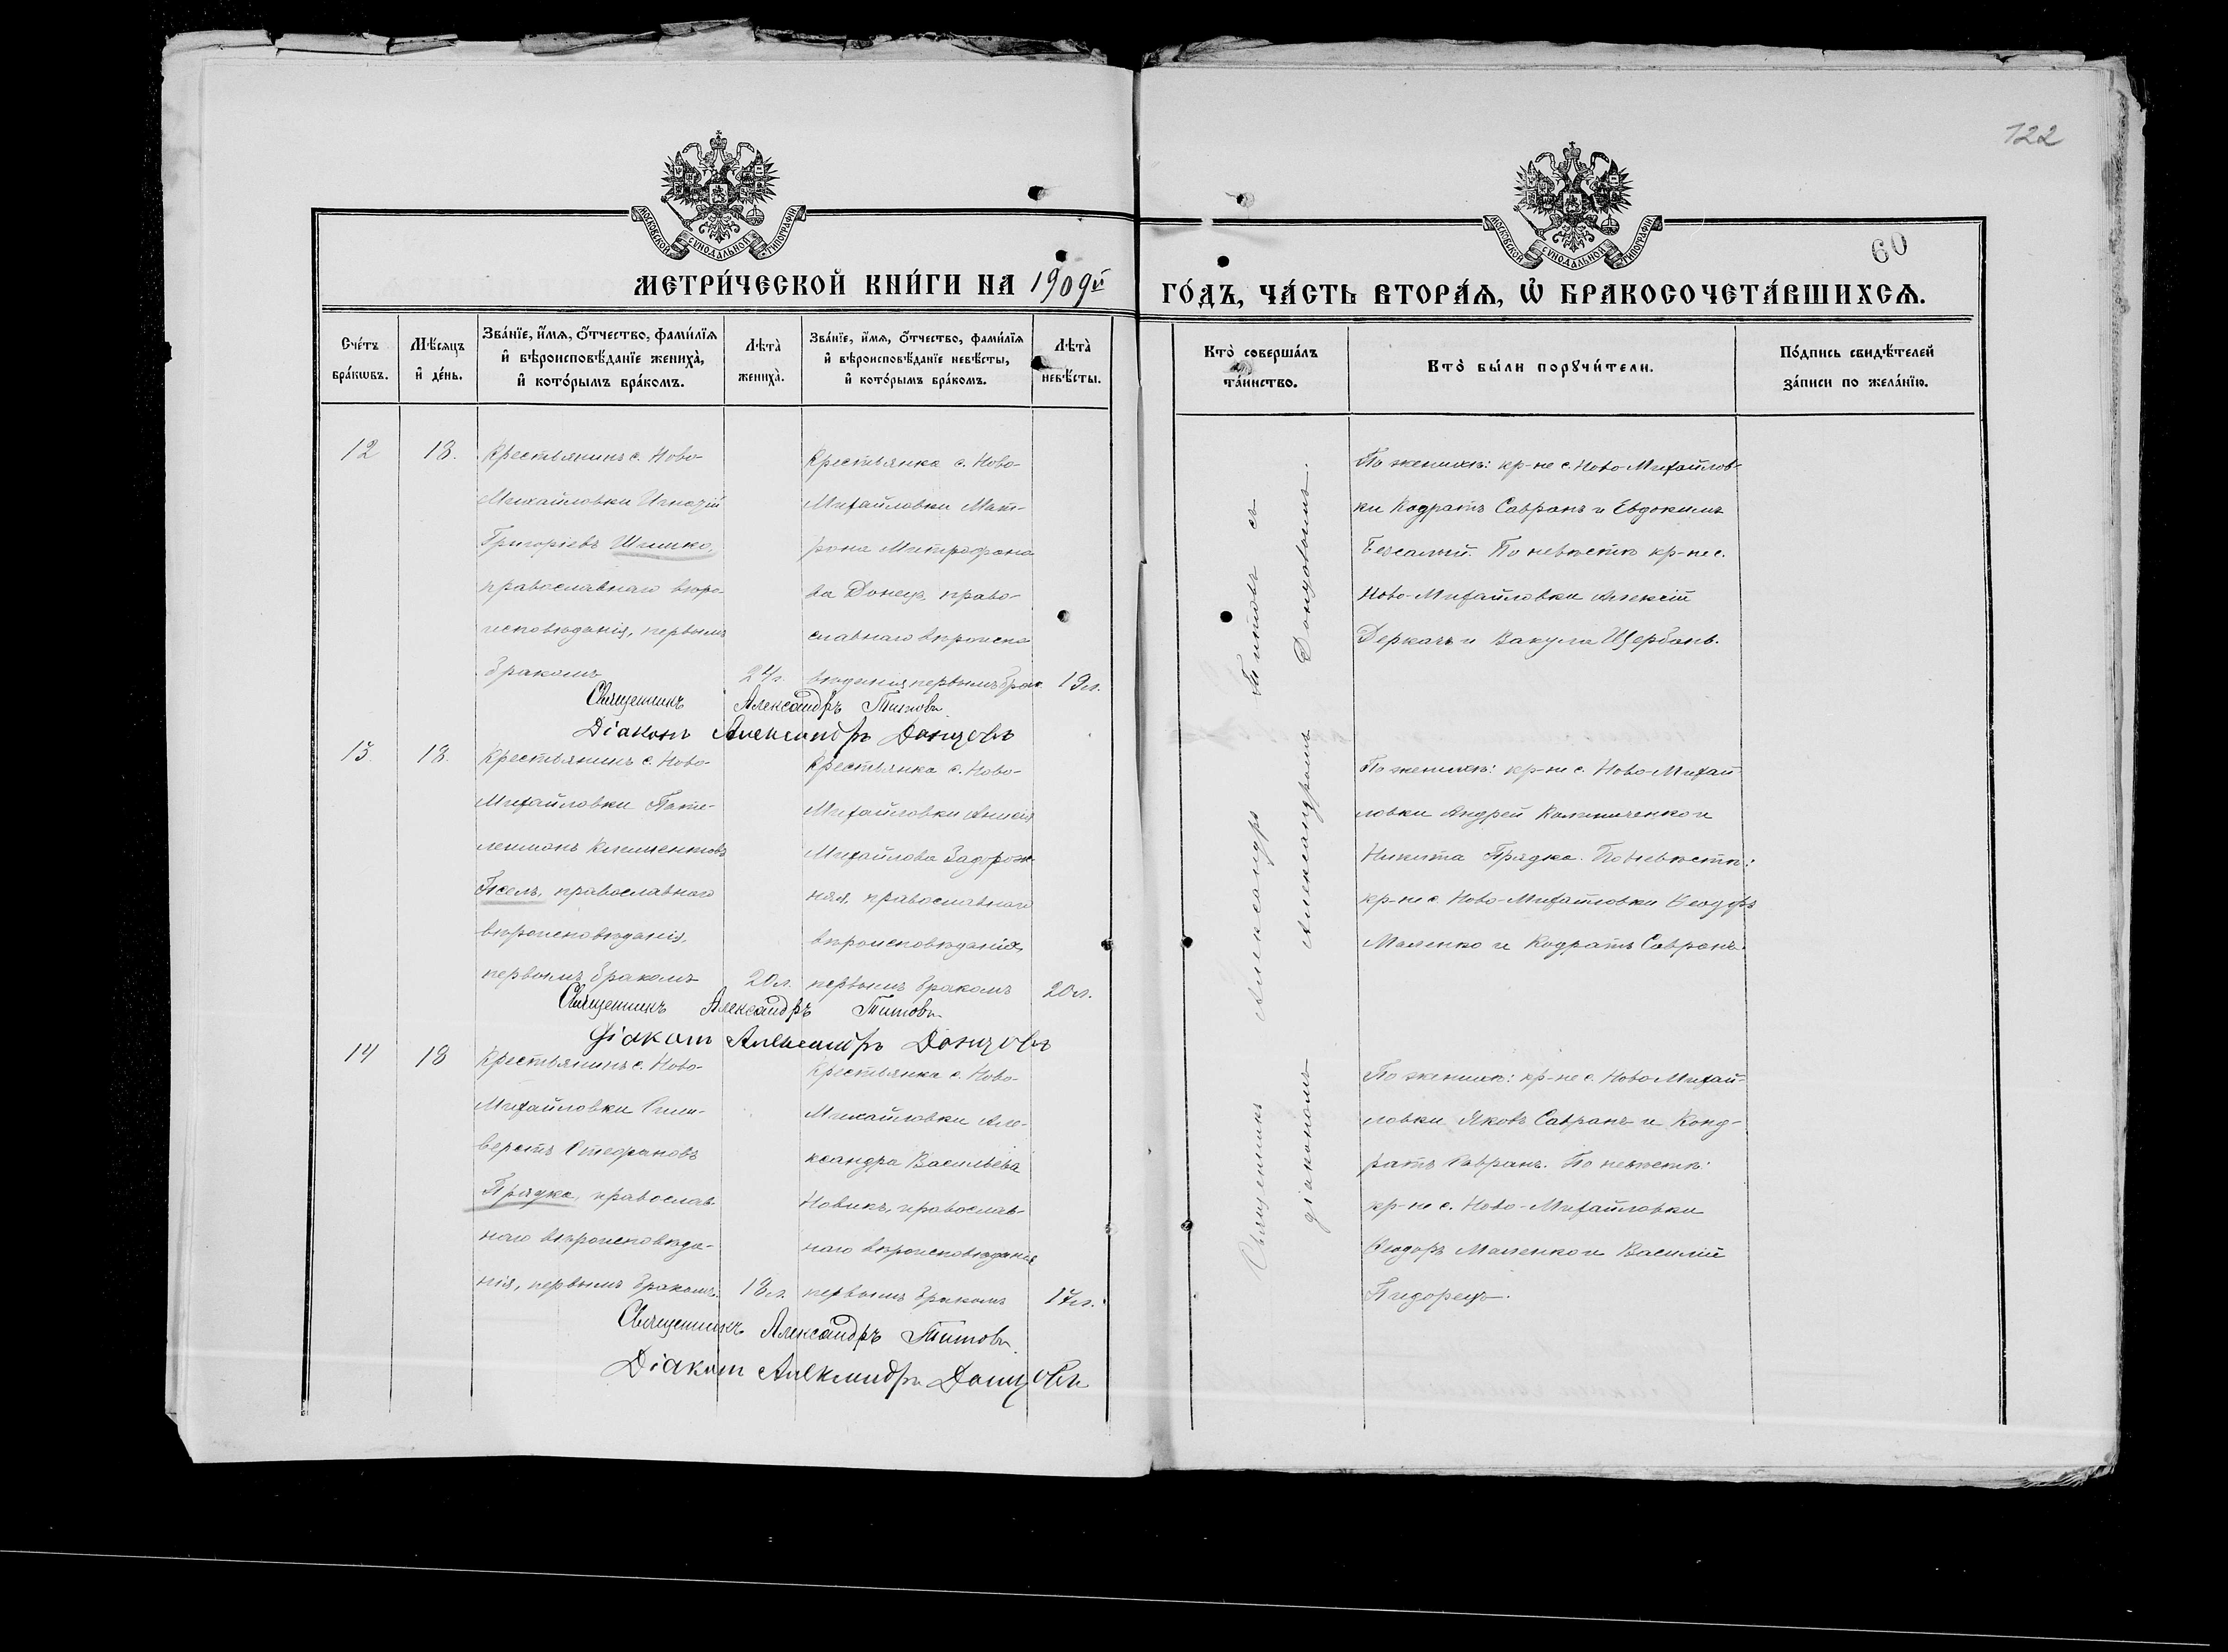 122
60
МОСКОВСКОЙ СУНОДАЛЬНОЙ ТИПОГРАФИИ
МОСКОВСКОЙ СУНОДАЛЬНОЙ ТИПОГРАФИИ
МЕТРИ́ЧЕСКОЙ КНИ́ГИ НА 1909й
ГО́ДЪ, ЧА́СТЬ ВТОРА́Ѧ, Ѡ҆ БРАКОСОЧЕТА́ВШИХСѦ.
Сче́тъ бра́кѡвъ.
Мѣ́сяцъ и҆ де́нь.
Зва́нїе, и҆́мѧ, ѻ҆́тчество, фами́лїѧ
и҆ вѣроисповѣ́данїе жениха̀,
и҆ кото́рымъ бра́комъ.
Лѣ́та̀ жениха̀.
Зва́нїе, и҆́мѧ, ѻ҆́тчество, фами́лїѧ
и҆ вѣроисповѣ́данїе невѣ́сты,
и҆ кото́рымъ бра́комъ.
Лѣ́та̀ невѣ́сты.
Кто̀ соверша́лъ
та́инство.
Кто̀ бы́ли порꙋчи́тели.
По́дпись свидѣ́телей
за́писи по жела́нїю.
12
18.
Крестьянинъ с. Ново-
Михайловки Игнатій
Григоріевъ Шишко,
православнаго вѣро-
исповѣданія, первымъ
бракомъ
24 г.
Крестьянка с. Ново-
Михайловки Мат-
рона Митрофано
ва Донецъ, право-
славнаго вѣроиспо
вѣданія, первымъ брак.
19 л.
По женихѣ: кр-не с. Ново-Михайлов-
ки Кодратъ Савранъ и Евдокимъ
По невѣстѣ кр-не с.
Ново-Михайловки Алексій
Деркачъ и Вакула Щербань.
Священникъ Александръ Титовъ
Діаконъ Александръ Донцовъ
13
18.
Крестьянинъ с. Ново-
Михайловки Пате-
леимонъ Климентовъ
Псёлъ, православнаго
вѣроисповѣданія,
первымъ бракомъ
20 л.
Крестьянка с. Ново-
Михайловки Анисія
Михайлова Задорож-
няя, православнаго
вѣроисповѣданія,
первымъ бракомъ
20 л.
По женихѣ: кр-не с. Ново-Михай-
ловки Андрей Калиниченко и
Никита Прядка. По невѣстѣ:
кр-не с. Ново-Михайловки Ѳеодоръ
Маленко и Кодратъ Савранъ.
Священникъ Александръ Титовъ
Діаконъ Александръ Донцовъ
14
18
Крестьянинъ с. Ново-
Михайловки Силь-
верстъ Стефановъ
Прядка, православ-
наго вѣроисповѣда-
нія, первымъ бракомъ.
18 л.
Крестьянка с. Ново-
Михайловки Але-
ксандра Васильева
Новикъ, православ-
наго вѣроисповѣданія
первымъ бракомъ
17 л.
По женихѣ: кр-не с. Ново-Михай-
ловки Яковъ Савранъ и Конд-
ратъ Савранъ. По невѣстѣ:
кр-не с. Ново-Михайловки
Ѳеодоръ Маленко и Василій
Пидорецъ.
Священникъ Александръ Титовъ
Діаконъ Александръ Донцовъ
Священникъ Александръ Титовъ съ
діакономъ Александромъ Донцовымъ.